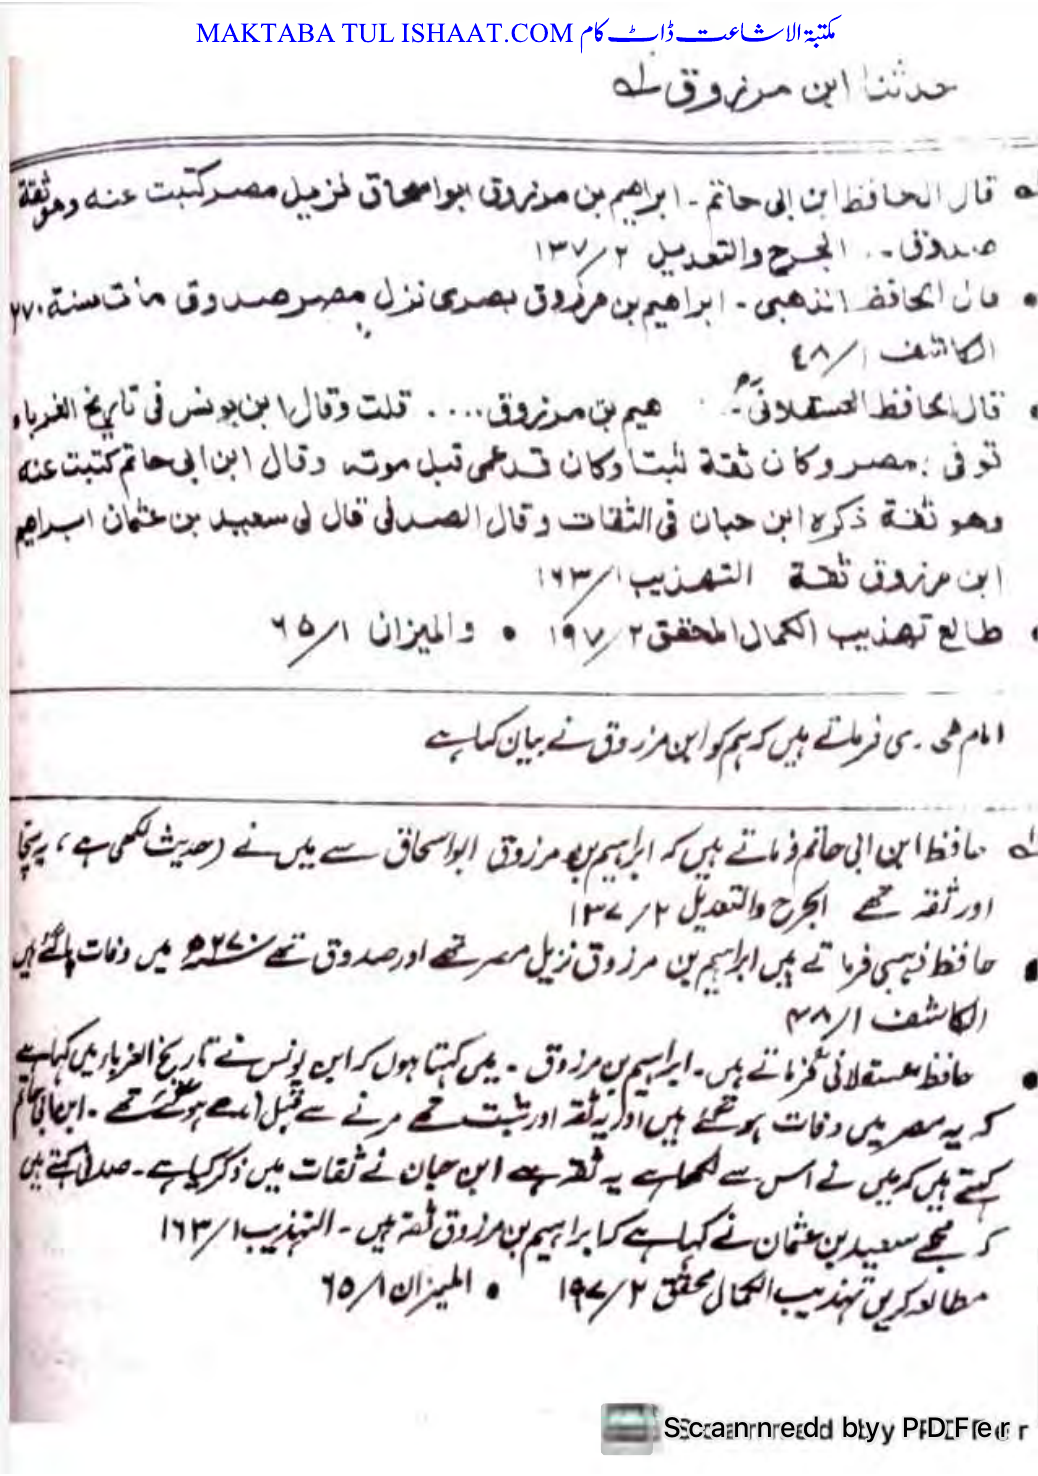 MAKTABA TUL ISHAAT.COM مکتبۃ الاشاعت ڈاٹ کام
حدثنا ابن مرزوق لہ
لہ قال الحافظ ابن ابی حاتم ۔ ابراهیم بن مرزوق ابو اسحاق نزیل مصر کتبت عنه وهو ثقة
صدوق ۔ الجرح والتعدیل ۲/۱۳۷
• قال الحافظ الذهبی ۔ ابراهیم بن مرزوق بصری نزل مصر صدوق مات سنة ۲۷۰
الکاشف ۱/٤۸
• قال الحافظ العسقلانی ۔ هیم بن مرزوق .... قلت وقال ابن یونس فی تاریخ الغرباء
توفی بمصر وکان ثقة ثبتا وکان قد عمی قبل موته وقال ابن ابی حاتم کتبت عنه
وهو ثقة ذکره ابن حبان فی الثقات وقال الصدفی قال لی سعید بن عثمان ابراهیم
ابن مرزوق ثقة التهذیب ۱/۱۶۳
• طالع تهذیب الکمال المحقق ۲/۱۹۷ • والمیزان ۱/۶۵
امام طحاوی فرماتے ہیں کہ ہم کو ابن مرزوق نے بیان کیا ہے
لہ حافظ ابن ابی حاتم فرماتے ہیں کہ ابراہیم بن مرزوق ابو اسحاق سے میں نے (حدیث لکھی ہے، یہ سچا
اور ثقہ تھے الجرح والتعدیل ۲/۱۳۷
• حافظ ذہبی فرماتے ہیں ابراہیم بن مرزوق نزیل مصر تھے اور صدوق تھے ۲۷۰ھ میں وفات پا گئے ہیں
الکاشف ۱/۴۸
• حافظ عسقلانی فرماتے ہیں ۔ ابراہیم بن مرزوق ۔ میں کہتا ہوں کہ ابن یونس نے تاریخ الغرباء میں کہا ہے
کہ یہ مصر میں وفات ہو گئے ہیں اور یہ ثقہ اور ثبت تھے مرنے سے قبل اندھے ہو گئے تھے ۔ ابن ابی حاتم
کہتے ہیں کہ میں نے اس سے لکھا ہے یہ ثقہ ہے ابن حبان نے ثقات میں ذکر کیا ہے ۔ صدفی کہتے ہیں
کہ مجھے سعید بن عثمان نے کہا ہے کہ ابراہیم بن مرزوق ثقہ ہیں ۔ التہذیب ۱/۱۶۳
مطالعہ کریں تہذیب الکمال محقق ۲/۱۹۷ • المیزان ۱/۶۵